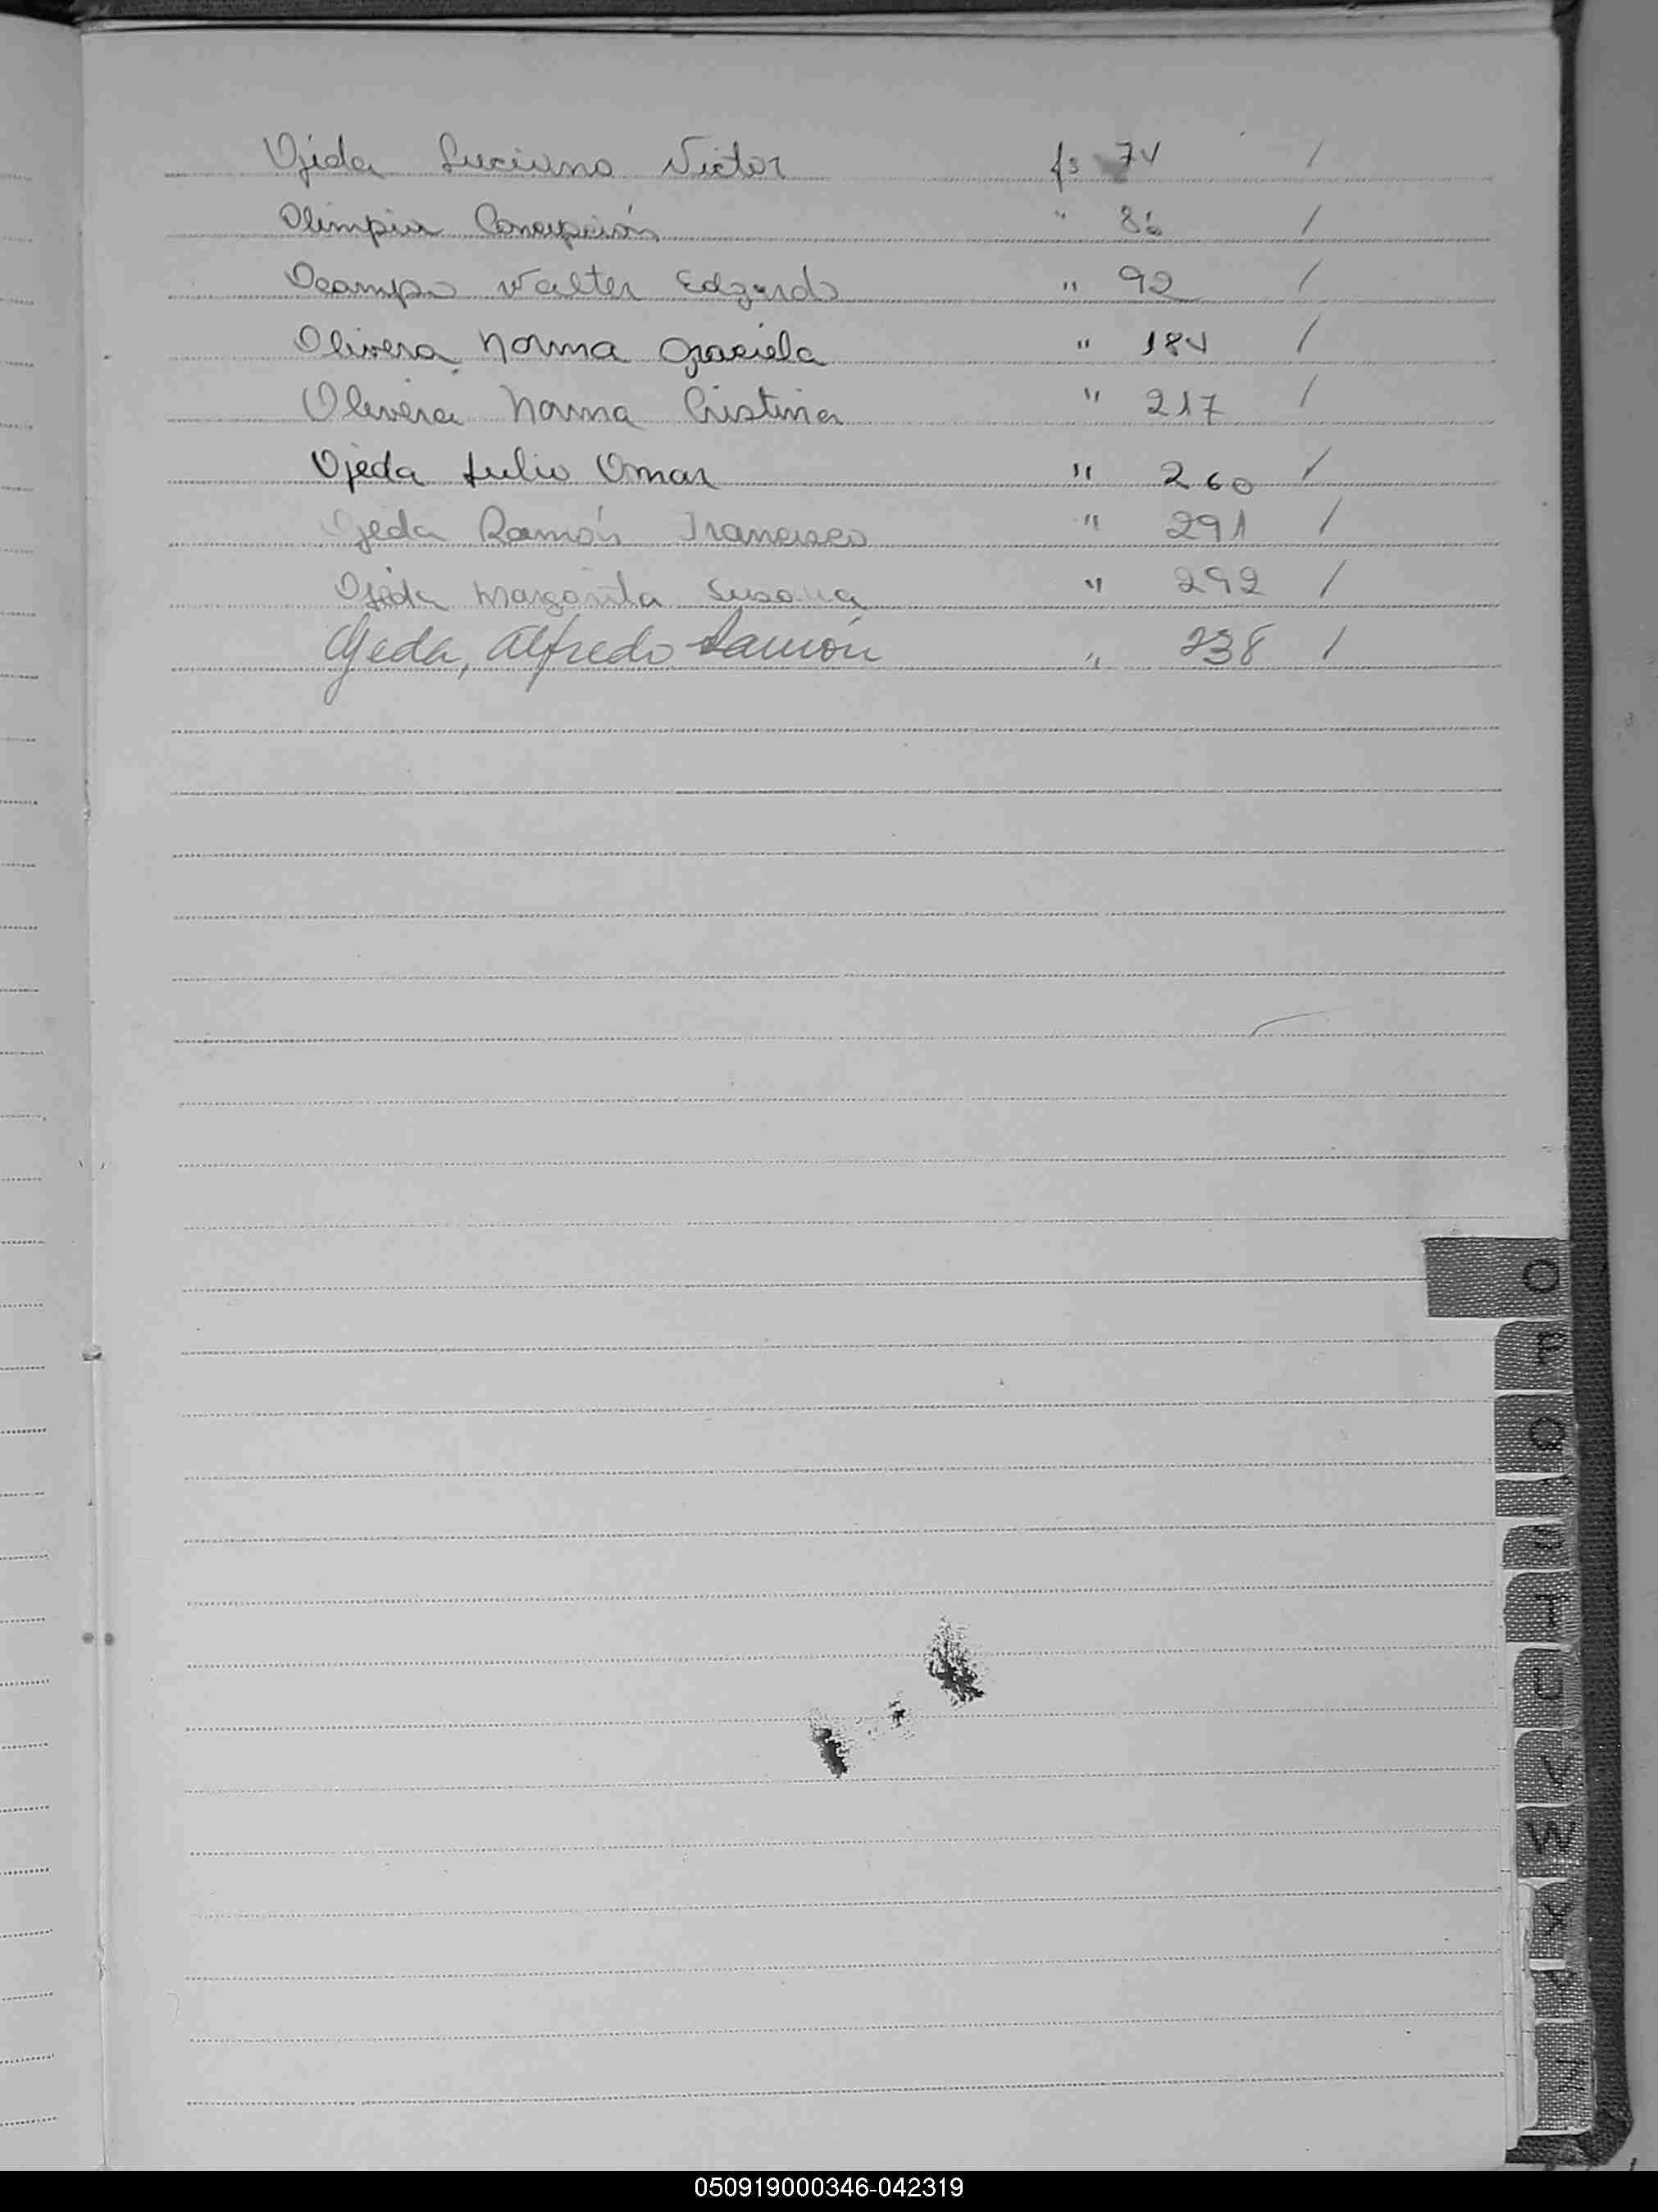 Ojeda Luciano Victor fs 74 /
Olimpia Concepción " 86 /
Ocampo Walter Edgardo " 92 /
Olivera Norma Graciela " 184 /
Olivera Norma Cristina " 217 /
Ojeda Julio Omar " 260 /
Ojeda Ramón Francisco " 291 /
Ojeda Margarita Susana " 292 /
Ojeda, Alfredo Ramón " 238 /
O
P
Q
W
X
050919000346-042319